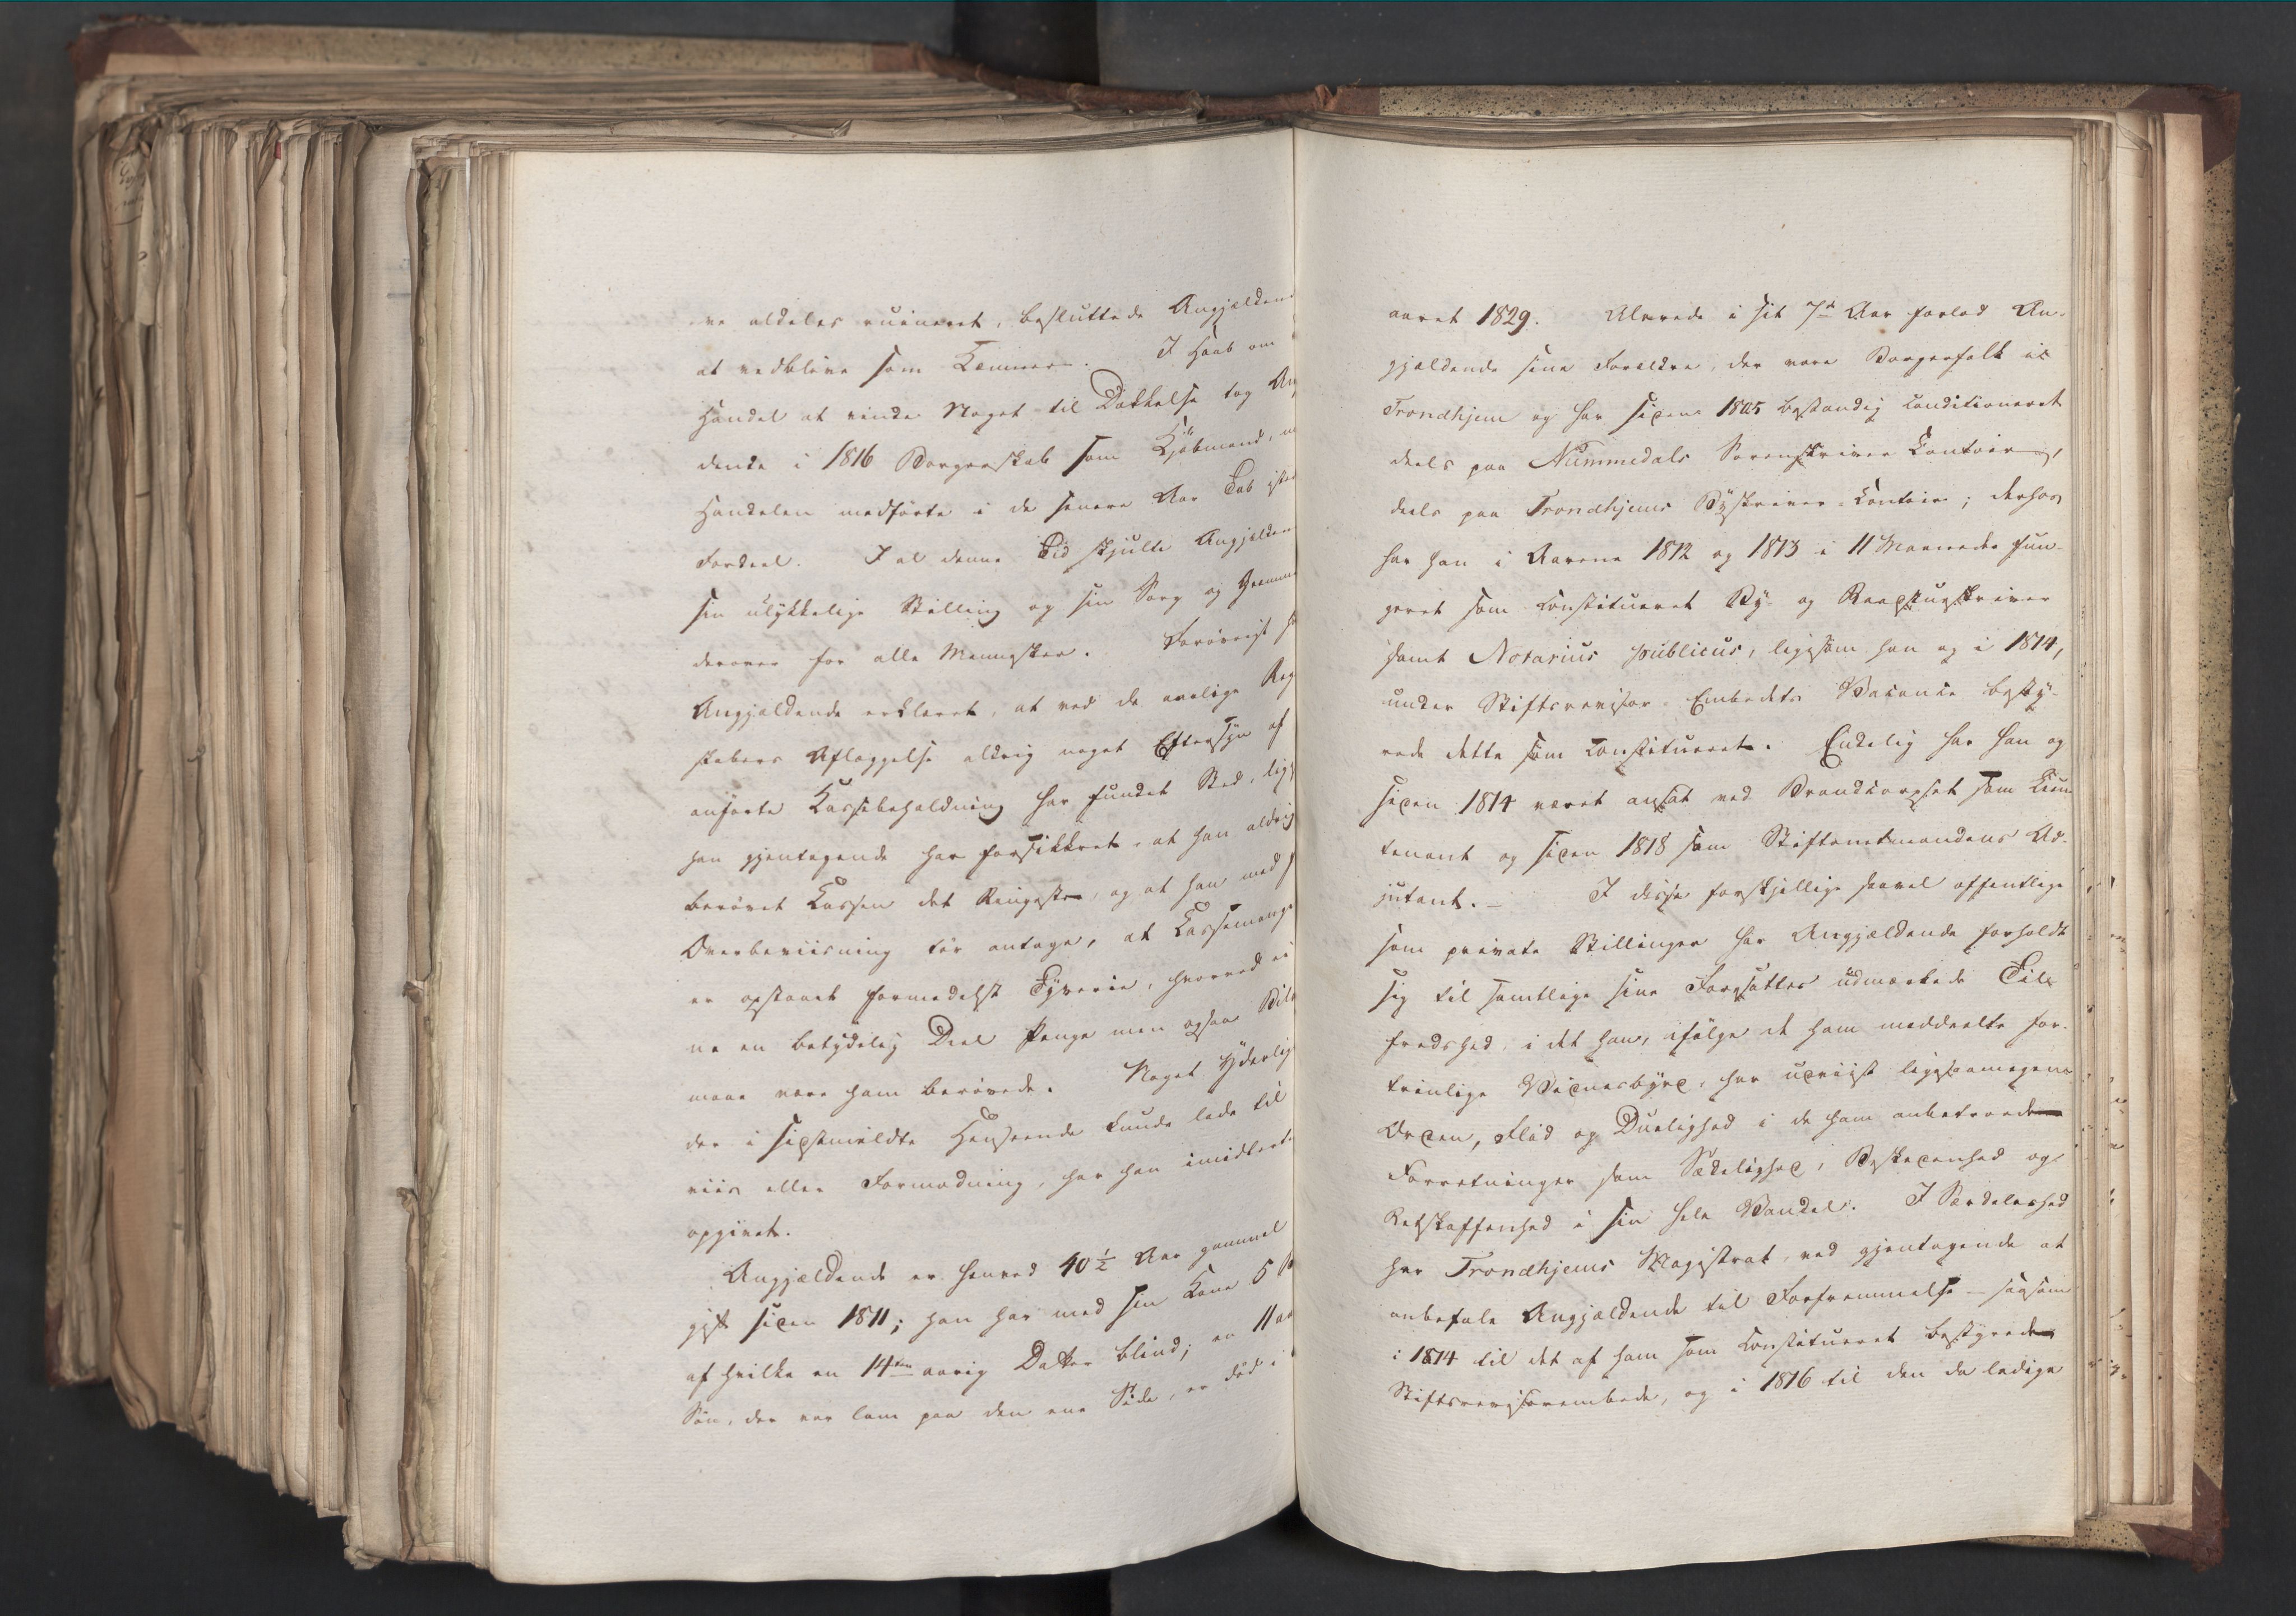 re aldeles ruineret, besluttede Angjælden
at vedblive som Kæmner. I Haab om
Handel at vinde Noget til Dækkelse tog An
dende i 1816 Borgerskab som Kjøbmand,
Handelen medførte i de senere Aar Tab
Fordeel. I al denne Tid skjulte Angjælden
sin ulykkelige Stilling og sin Sorg og Græmm
derover for alle Mennesker. Forøvrigt h
Angjældende erklæret, at ved de aarlige Reg
skabers Aflæggelse aldrig noget Eftersyn af
anførte Kassebeholdning har fundet Sted, lig
han gjentagende har forsikkret, at han aldrig
berøvet Kassen det Ringeste, og at han med
Overbeviisning tør antage, at Kassemang
er opstaaet formedelst Tyverie, hvorved ei
ne en betydelig Deel Penge men ogsaa Bil
maae være ham berøvede. Noget Yderlig
der i sidstmeldte Henseende kunde lede til
viis eller Formodning, har han imidlert
opgivet.
Angjældende er henved 40½ Aar gammel
gift siden 1811; han har med sin Kone 5
af hvilke en 14ten aarig Datter blind; en 11 aa
Søn, der var lam paa den ene Side, er død i
aaret 1829. Allerede i sit 7de Aar forlod An-
gjældende sine Forældre, der vare Borgerfolk i
Trondhjem og har siden 1805 bestandig conditioneret
deels paa Nummedals Sorenskriver Contoir,
deels paa Trondhjems Byskriver-Contoir; derhos
har han i Aarene 1812 og 1813 i 11 Maaneder fun-
geret som constitueret By- og Raadstueskriver
samt Notarius publicus, ligesom han og i 1814,
under Stiftsrevisor-Embedets Vacance besty-
rede dette som constitueret. Endelig har han og
siden 1814 været ansat ved Brandcorpset som Lieu
tenant og siden 1818 som Stiftamtmandens Ad-
jutant. – I disse forskjellige saavel offentlige
som private Stillinger har Angjældende forholdt
sig til samtlige sine Foresattes udmærkede Til
fredshed, i det han, ifølge de ham meddeelte for-
trinlige Vidnesbyrd, har udviist ligesaamegen
Orden, Flid og Duelighed i de ham anbetroede
Forretninger som Sædelighed, Beskedenhed og
Retskaffenhed i sin hele Vandel. I Særdeleshed
har Trondhjems Magistrat, ved gjentagende at
anbefale Angjældende til Forfremmelse – saasom
i 1814 til det af ham som constitueret bestyrede
Stiftsrevisorembede, og i 1816 til den da ledige